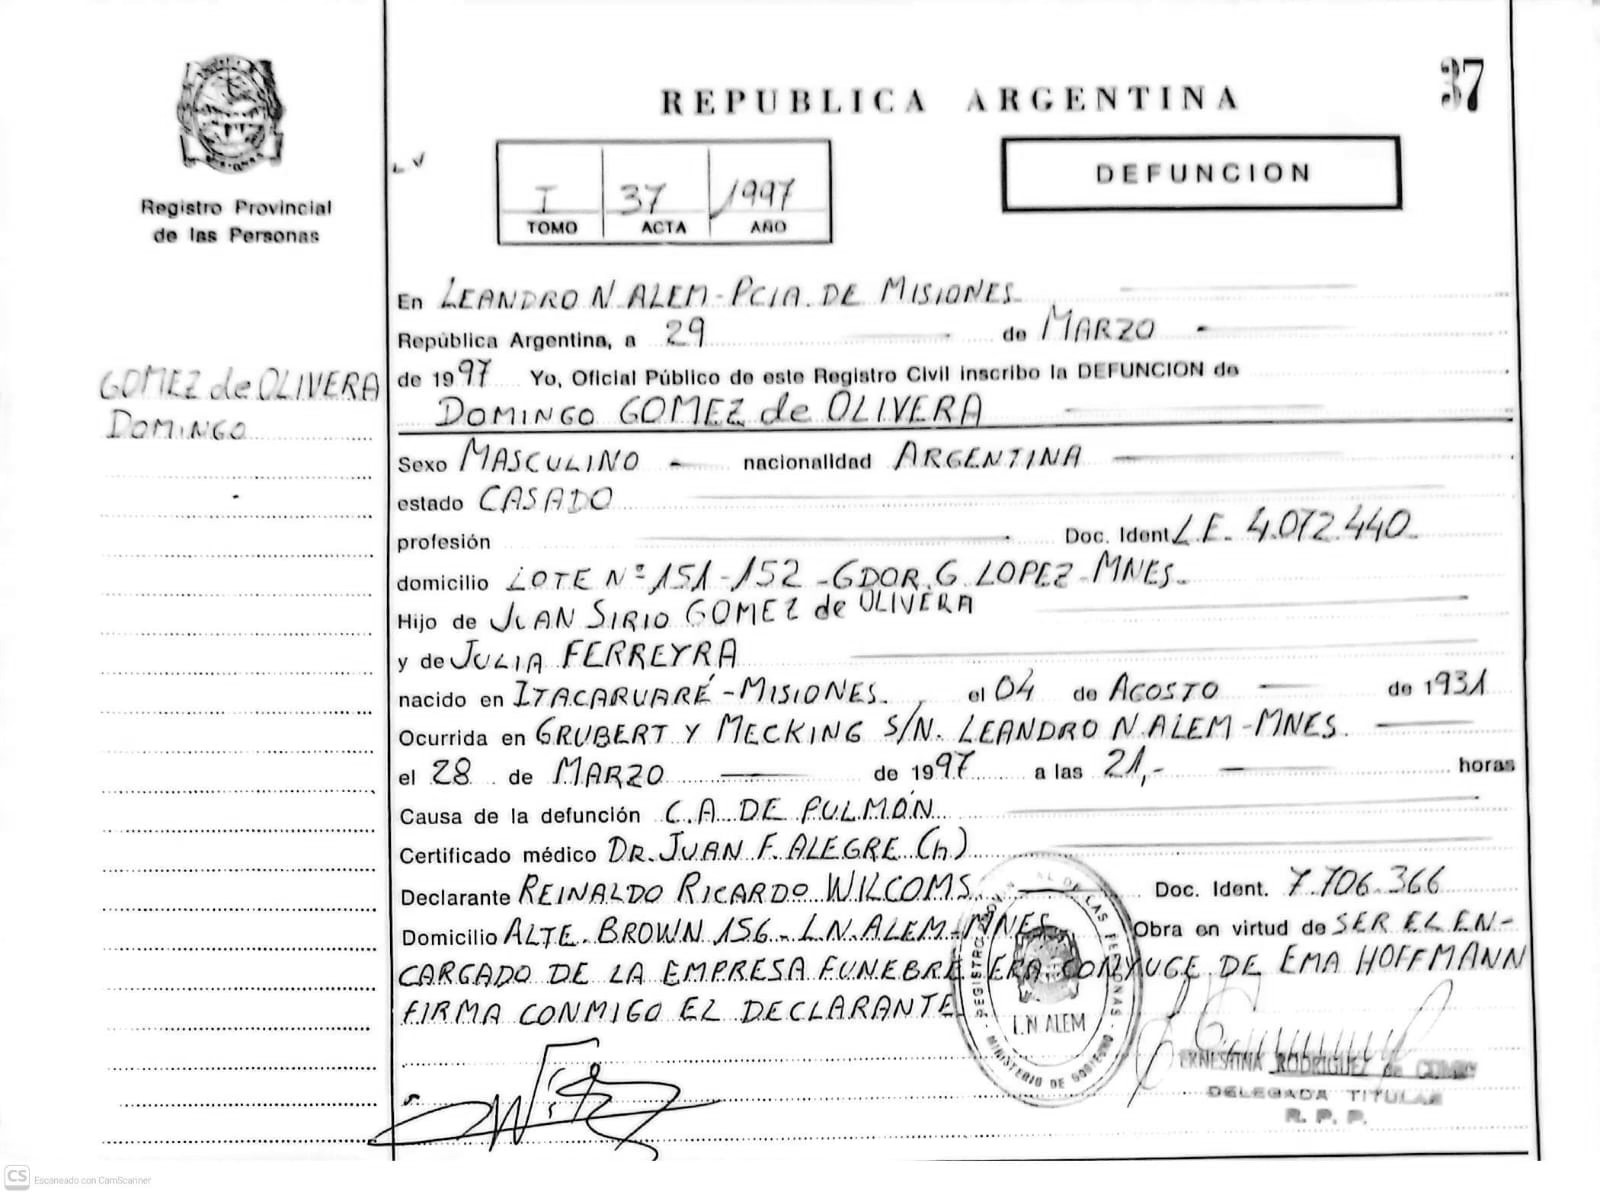 37
REPUBLICA ARGENTINA
I 37 1997
TOMO ACTA AÑO
DEFUNCION
Registro Provincial
de las Personas
GOMEZ de OLIVERA
DOMINGO
En LEANDRO N. ALEM - PCIA. DE MISIONES
República Argentina, a 29 de MARZO
de 1997 Yo, Oficial Público de este Registro Civil inscribo la DEFUNCION de
DOMINGO GOMEZ de OLIVERA
Sexo MASCULINO nacionalidad ARGENTINA
estado CASADO
profesión Doc. Ident L.E. 4.072.440
domicilio LOTE Nº 151-152 - GDOR. G. LOPEZ - MNES.
Hijo de JUAN SIRIO GOMEZ de OLIVERA
y de JULIA FERREYRA
nacido en ITACARUARÉ - MISIONES. el 04 de AGOSTO de 1931
Ocurrida en GRUBERT Y MECKING S/N. LEANDRO N. ALEM - MNES.
el 28 de MARZO de 1997 a las 21,- horas
Causa de la defunción C.A. DE PULMÓN
Certificado médico DR. JUAN F. ALEGRE (h)
Declarante REINALDO RICARDO WILCOMS. Doc. Ident. 7.706.366
Domicilio ALTE. BROWN 156 - L.N. ALEM - MNES Obra en virtud de SER EL EN-
CARGADO DE LA EMPRESA FUNEBRE ERA CONYUGE DE EMA HOFFMANN
FIRMA CONMIGO EL DECLARANTE
REGISTRO PROVINCIAL DE LAS PERSONAS
L.N ALEM
MINISTERIO DE GOBIERNO
ERNESTINA RODRIGUEZ de
DELEGADA TITULAR
R. P. P.
CS Escaneado con CamScanner